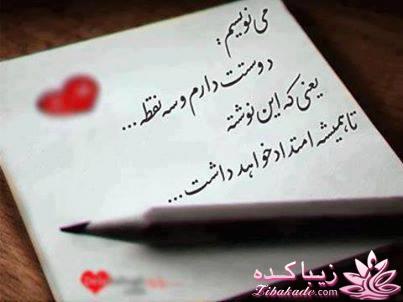 می نویسم :
دوستت دارم و سه نقطه ...
یعنی که این نوشته
تا همیشه امتداد خواهد داشت ...
زیباکده
Zibakade.com